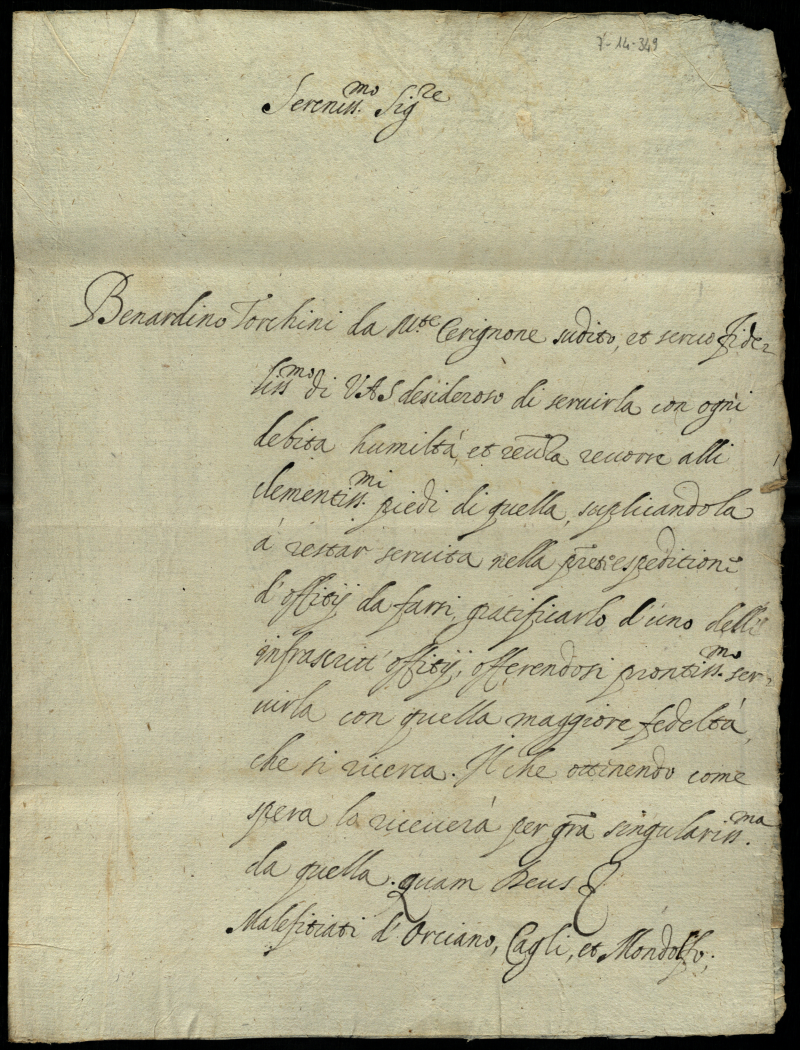 7-14-349
Sereniss.mo Sig.re
Benardino Torchini da M.te Cerignone sudito, et seruo fide-
liss.mo di VAS desideroso di seruirla con ogni
debita humiltà, et reu.a recorre alli
clementiss.mi piedi di quella, suplicandola
à restar seruita nella espeditione
d'offitij da farsi, gratificarlo d'uno delli
infrascritt' offitij, offerendosi prontiss.mo ser-
uirla con quella maggiore fedeltà,
che si ricerca. Il che ottinendo come
spera lo riceuerà per gra singulariss.ma
da quella. quam Deus
Malefitiati d'Orciano, Cagli, et Mondolfo;